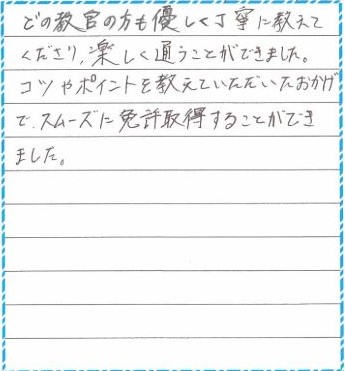 どの教官の方も優しく丁寧に教えて
くださり、楽しく通うことができました。
コツやポイントを教えていただいたおかげ
で、スムーズに免許取得することができ
ました。